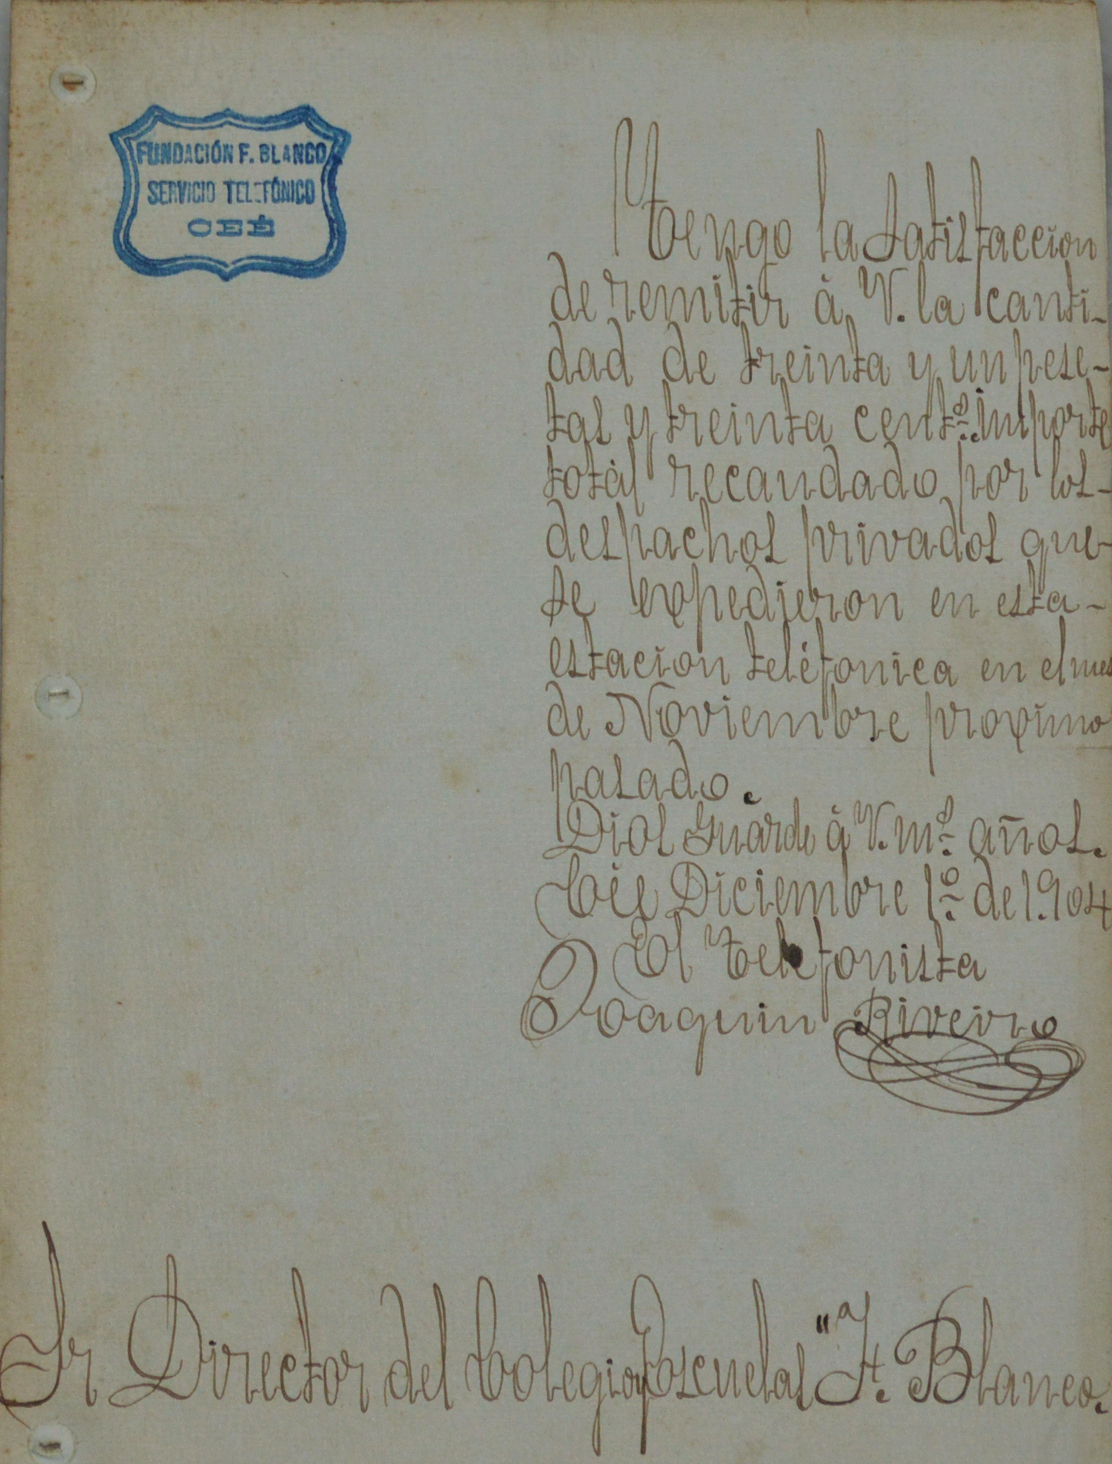 FUNDACIÓN F. BLANCO
SERVICIO TELEFÓNICO
CEÉ
Tengo la satisfaccion
de remitir á V. la canti-
dad de treinta y un pese-
tas y treinta cents. importe
total recaudado por los-
despachos privados que-
se expedieron en esta-
estacion teléfonica en el mes
de Noviembre proximo
pasado.
Dios Guarde á V. ms. años.
Cée Diciembre 1º. de 1.904
El Telefonista
Joaquin Riveiro
Sr Director del Colegio y Escuelas "F. Blanco.